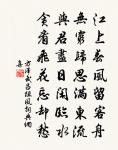 江上春風留客舟
無窮歸思滿東流
與君盡日閒臨水
貪看飛花忘却愁